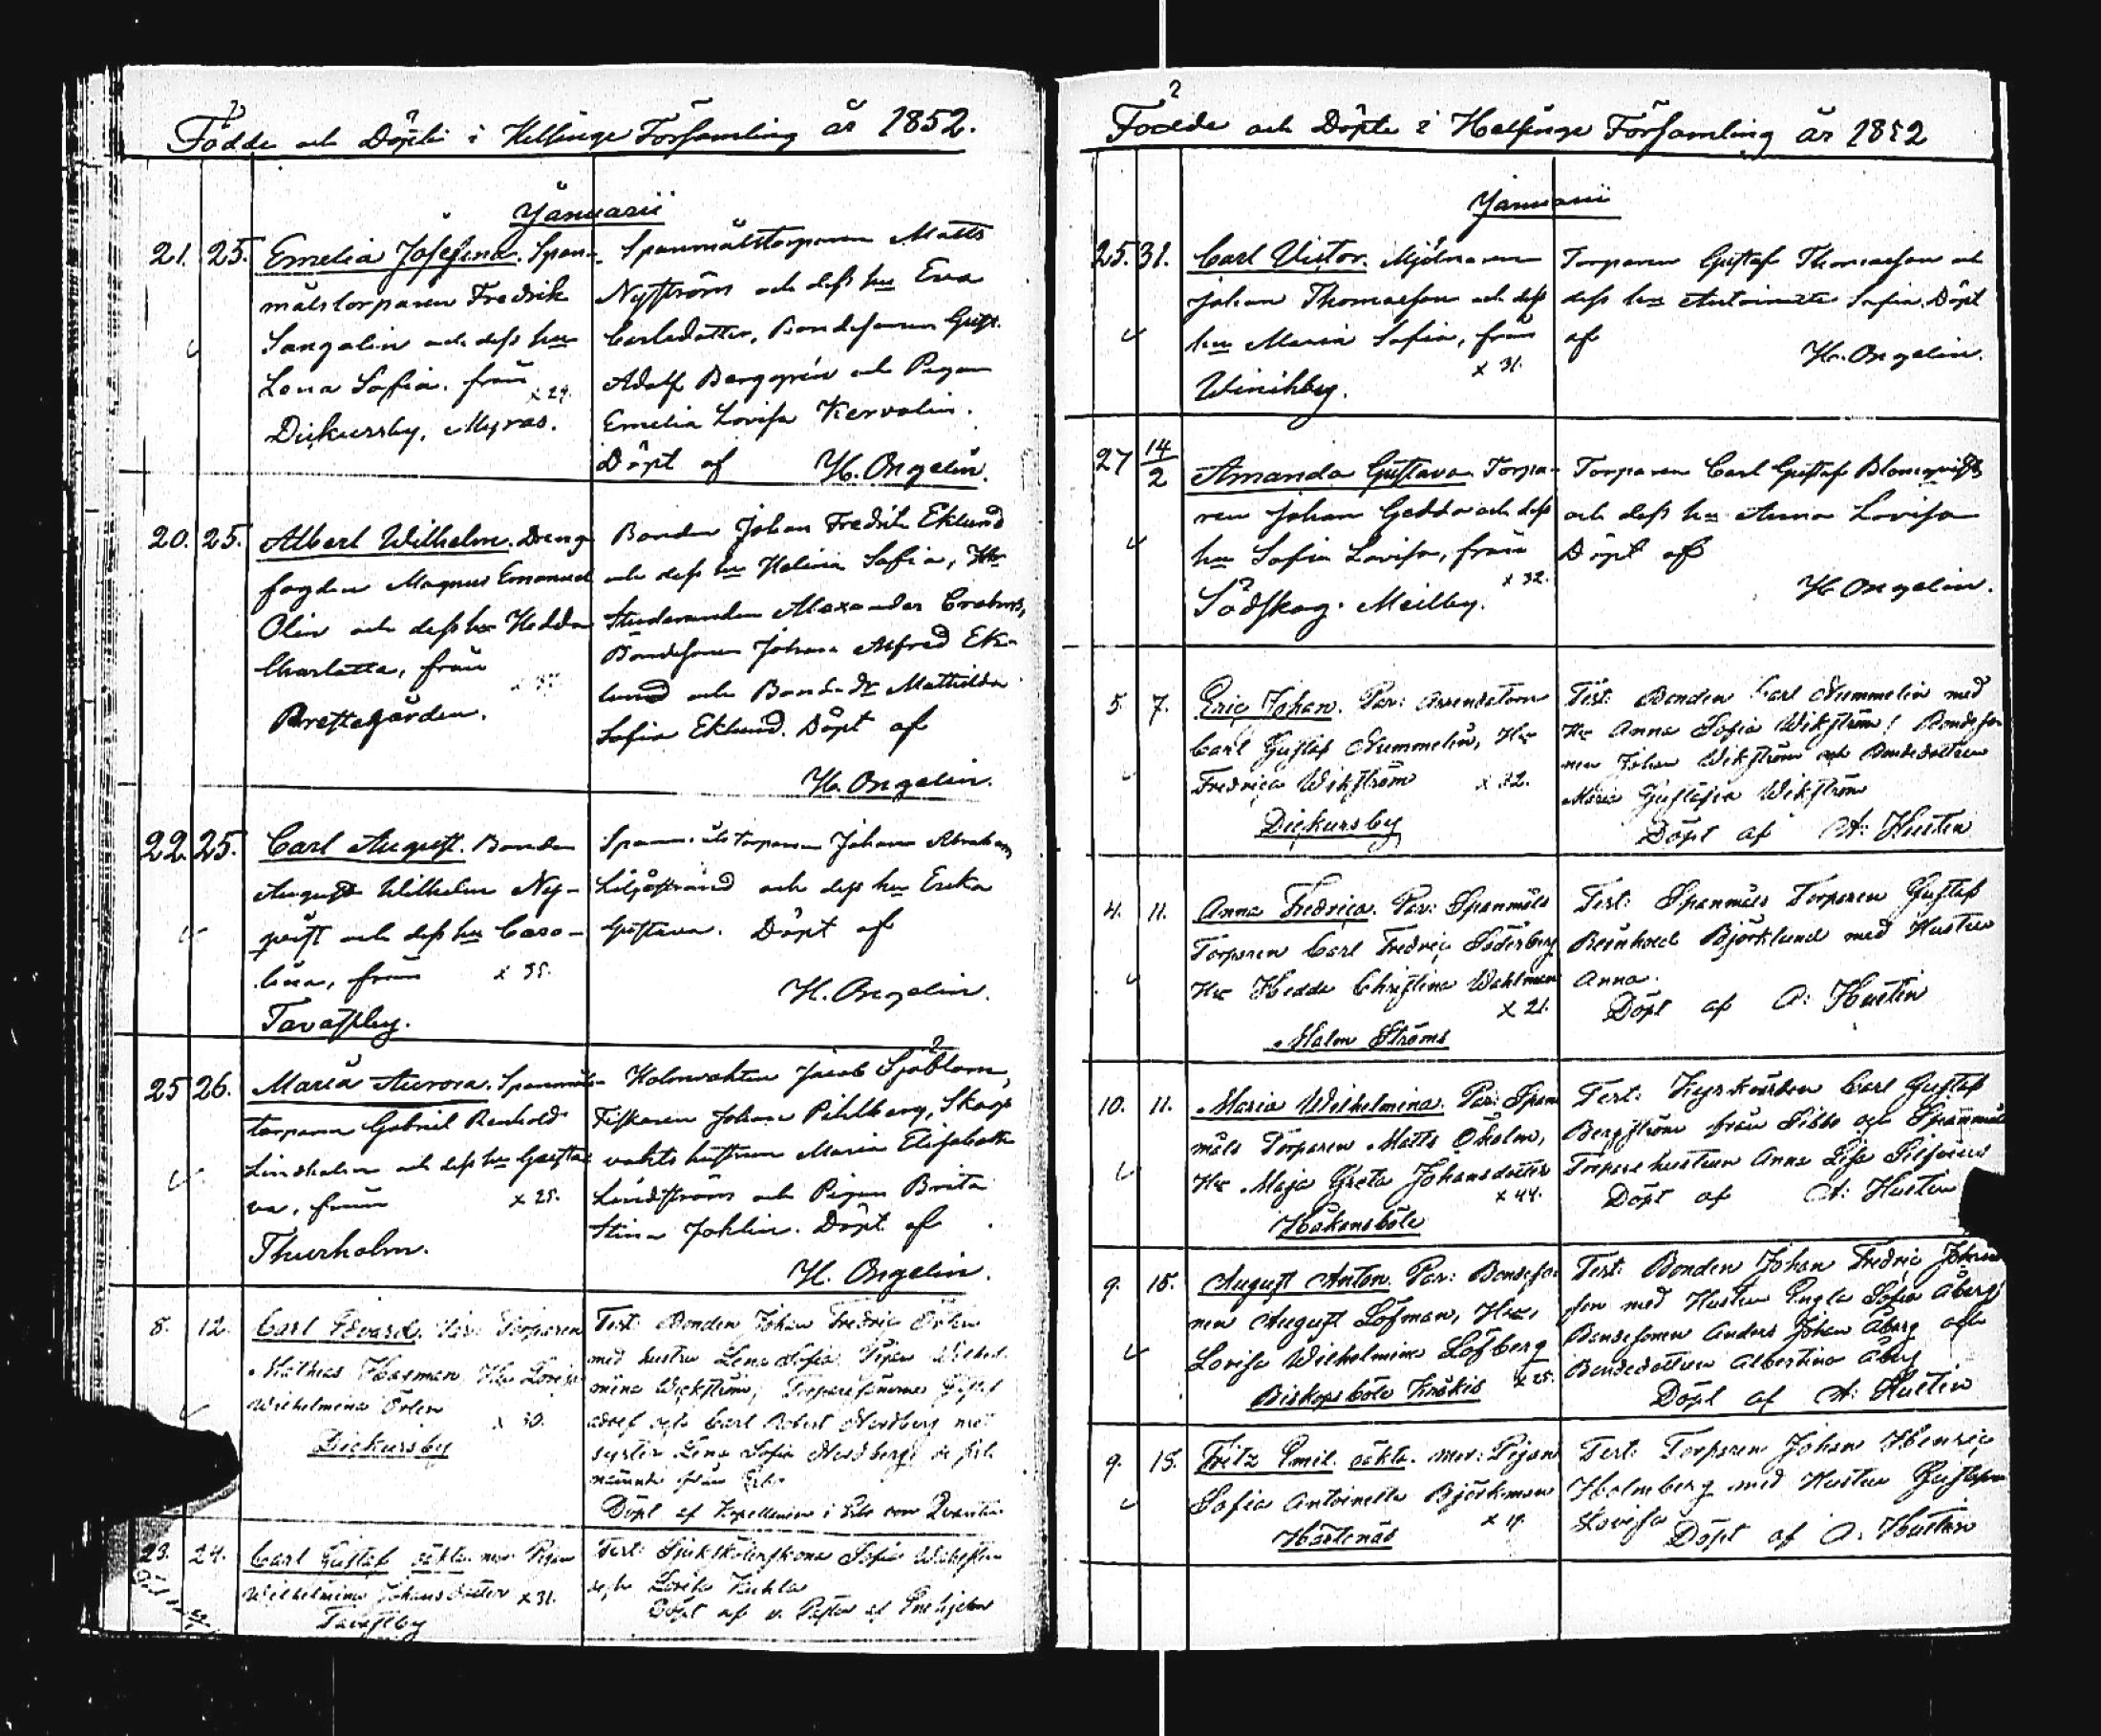 Födde och Döpte i Helsinge Församling år 1852.
Januarii
21. 25. Emelia Josefina. Span-
målstorparen Fredrik
Sangelin och dess hu
Lena Sofia. från
x 29.
Dickursby, Myras.
Spanmålstorparen Matts
Nyström och dess hu Eva
Carlsdotter, Bondesonen Gust.
Adolf Berggrén och Pigan
Emelia Lovisa Kervolin.
Döpt af H. Ongelin.
20. 25. Albert Wilhelm. Dreng-
fogden Magnus Emanuel
Olin och dess hu Hedda
Charlotta, från
Prestegården.
Bonden Johan Fredrik Eklund
och dess hu Helena Sofia, Hr
Studeranden Alexander
Bondesonen Johan Alfred Ek-
lund och Bonde dr Mathilda
Sofia Eklund. Döpt af
H. Ongelin.
22. 25. Carl August. Bonden
August Wilhelm Ny-
qvist och dess hu Caro-
lina, från x 35.
Tavastby.
Spanmålstorparen Johan Abraham
Liljestrand och dess hu Erika
Gustava. Döpt af
H. Ongelin.
25 26. Maria Aurora. Spanmåls-
torparen Gabriel Renhold
Lindholm och dess hu Gusta-
va, från x 25.
Thurholm.
Holmvakten Jacob Sjöblom,
Fiskaren Johan Pihlberg, Skogs
vaktshustrun Maria Elisabeth
Lindström och Pigan Brita
Stina Johlin. Döpt af
H. Ongelin.
8. 12. Carl Edvard. Par: Torparen
Mathias Hasman Hu Lovisa
Wilhelmina Örlen
x 30.
Dickursby
Test: Bonden Johan Fredric Örlen
med hustru Lena Sofia. Pigan Wilhel-
mina Wickström, Torparesönerne Gustaf
Adolf och Carl Robert Nordberg med
syster Lena Sofia Nordberg, de sist
nämnde från
Döpt af Kapellanen i
23. 24. Carl Gustaf oäkta. mor: Pigan
Wilhelmina Johansdotter x 31.
Tavastby
Test: Sofia
och Lovisa
Döpt af v. Pastor
Födde och Döpte i Helsinge Församling år 1852
Januarii
25. 31. Carl Victor. Mjölnaren
Johan Thomasson och dess
hu Maria Sofia, från
x 31.
Winikby.
Torparen Gustaf Thomasson och
dess hu Antoinette Sofia. Döpt
af
H. Ongelin.
27 14/2 Amanda Gustava. Torpa-
ren Johan Gedda och dess
hu Sofia Lovisa, från
x 32.
Södskog. Meilby.
Torparen Carl Gustaf Blomqvist
och dess hu Anna Lovisa
Döpt af
H. Ongelin.
5. 7. Eric Johan. Par: Arrendatorn
Carl Gustaf Nummelin, Hu
Fredrica Wikström x 32.
Dickursby
Test: Bonden Carl Nummelin med
Hu Anna Sofia Wikström! Bondeso-
nen Johan Wikström och Bondedottren
Maria Gustafva Wikström
Döpt af A: Hustin
4. 11. Anna Fredrica. Par: Spanmåls
Torparen Carl Fredric Söderberg
Hu Hedda Christina Wahlman
x 21.
Malm Ströms
Test: Spanmåls Torparen Gustaf
Reinhold Björklund med Hustru
Anna.
Döpt af A: Hustin
10. 11. Maria Wilhelmina. Par: Span
måls Torparen Matts Öholm,
Hu Maja Greta Johansdotter
x 44.
Håkansböle
Test: Kyrkvärden Carl Gustaf
Bergström från Sibbo och Spanmåls
Torpare hustrun Anna Lisa
Döpt af A: Hustin
9. 15. August Anton. Par: Bondeso-
nen August Löfman, Hu
Lovisa Wilhelmina Löfberg
x 25.
Biskopsböle Knäkis
Test: Bonden Johan Fredric Johans
son med Hustru Engla Sofia Åberg!
Bondesonen Anders Johan Åberg och
Bondedottren Albertina Åberg
Döpt af A: Hustin
9. 15. Fritz Emil. oäkta. mor: Pigan
Sofia Antoinetta Björkman
x 19.
Hästenäs
Test: Torparen Johan Henric
Holmberg med Hustru Gustafva
Lovisa
Döpt af A: Hustin